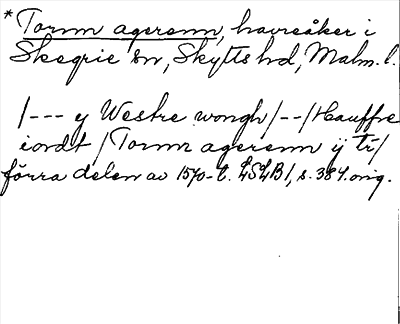 *Tornn agerenn, havreåker i
Skegrie sn, Skytts hd, Malm. l.
/--- y Westre wongh/--/Hauffre
iordt/Tornn agerenn ÿ tÿ/
förra delen av 1570-t. LSLB1, s. 384. orig.